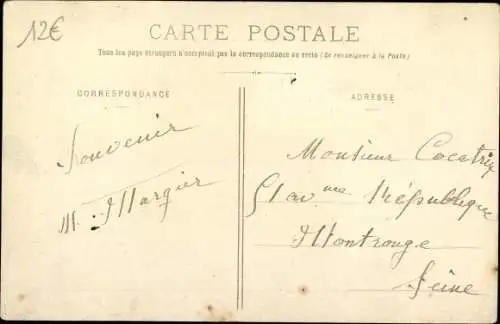 12€
CARTE POSTALE
Tous les pays étrangers n'acceptent pas la correspondance au recto (Se renseigner à la Poste)
CORRESPONDANCE
Souvenir
M. Margier
ADRESSE
Monsieur Cocatrix
51 av République
Montrouge
Seine